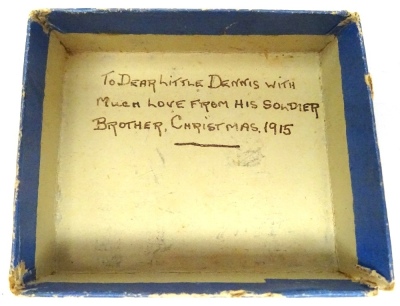 To Dear Little Dennis with
much love from his soldier
Brother, Christmas, 1915